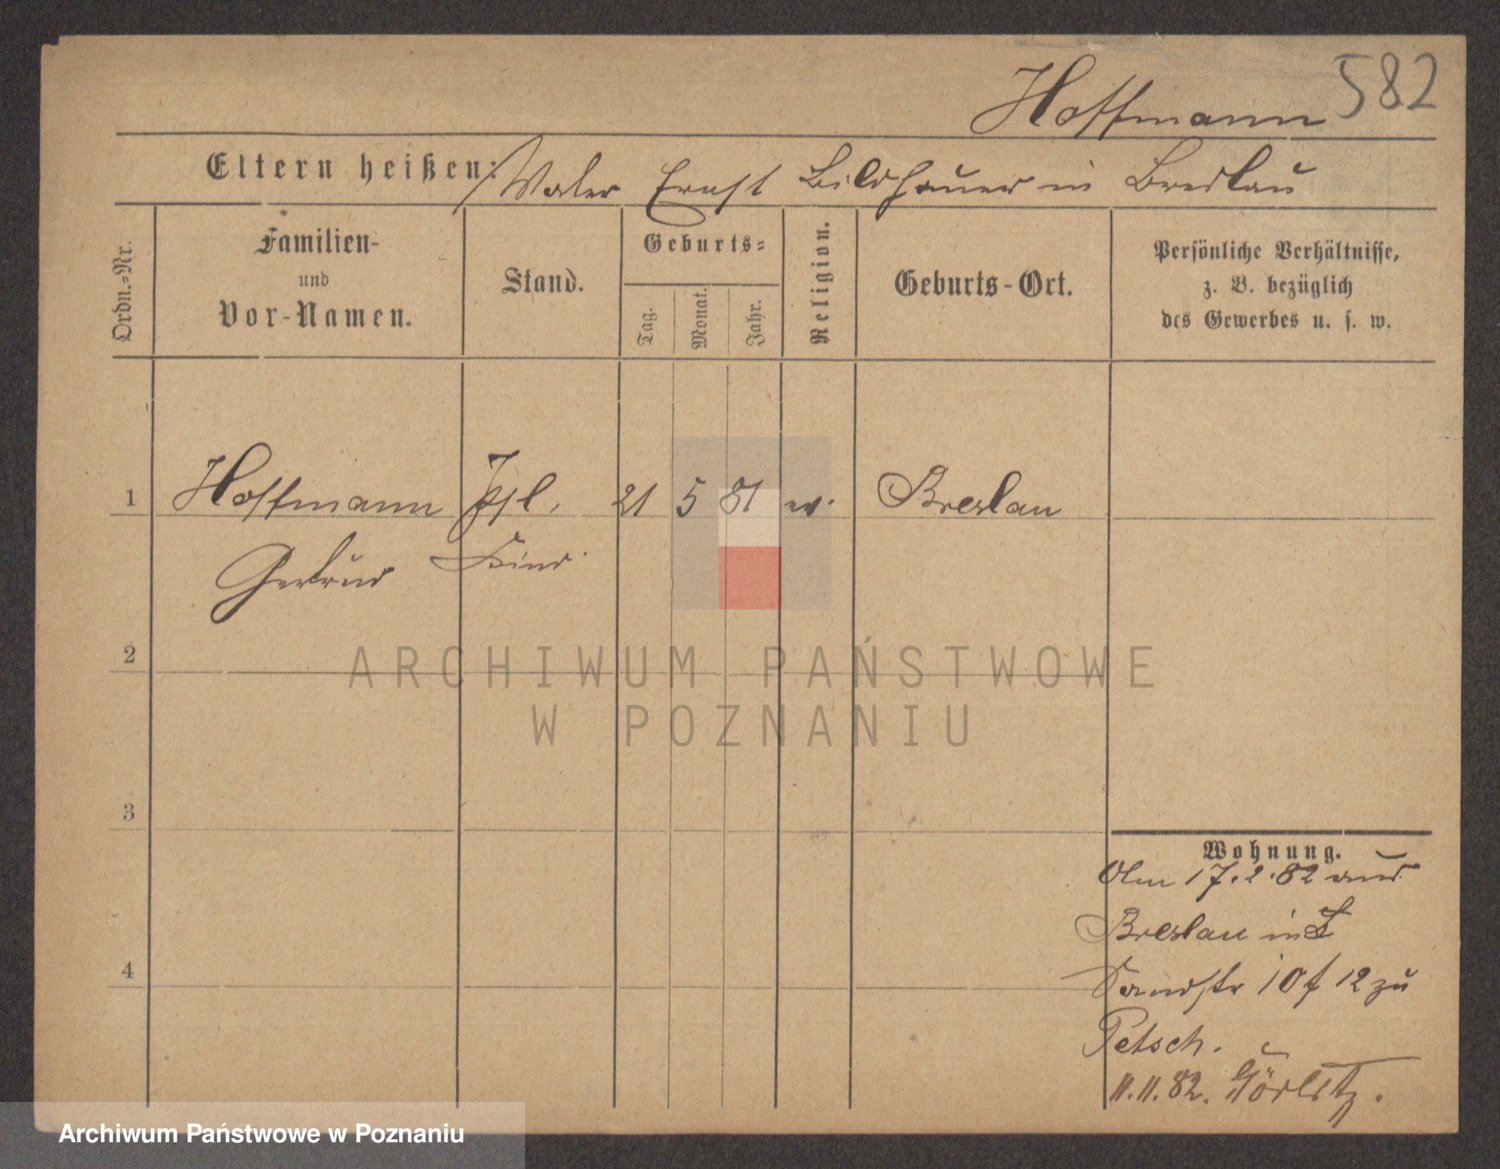 Hoffmann 582
Eltern heißen: Vater Ernst Bildhauer in Breslau
Ordn.-Nr.
Familien-
und
Vor-Namen.
Stand.
Geburts-
Tag.
Monat.
Jahr.
Religion.
Geburts-Ort.
Persönliche Verhältnisse,
z. B. bezüglich
des Gewerbes u. s. w.
1 Hoffmann 21 5 81 Breslau
Gertrud Kind
2
3
4
Wohnung.
17.2.82 aus
Breslau in
Sandstr 10 12 zu
Petsch.
11.11.82. Görlitz.
ARCHIWUM PAŃSTWOWE
W POZNANIU
Archiwum Państwowe w Poznaniu